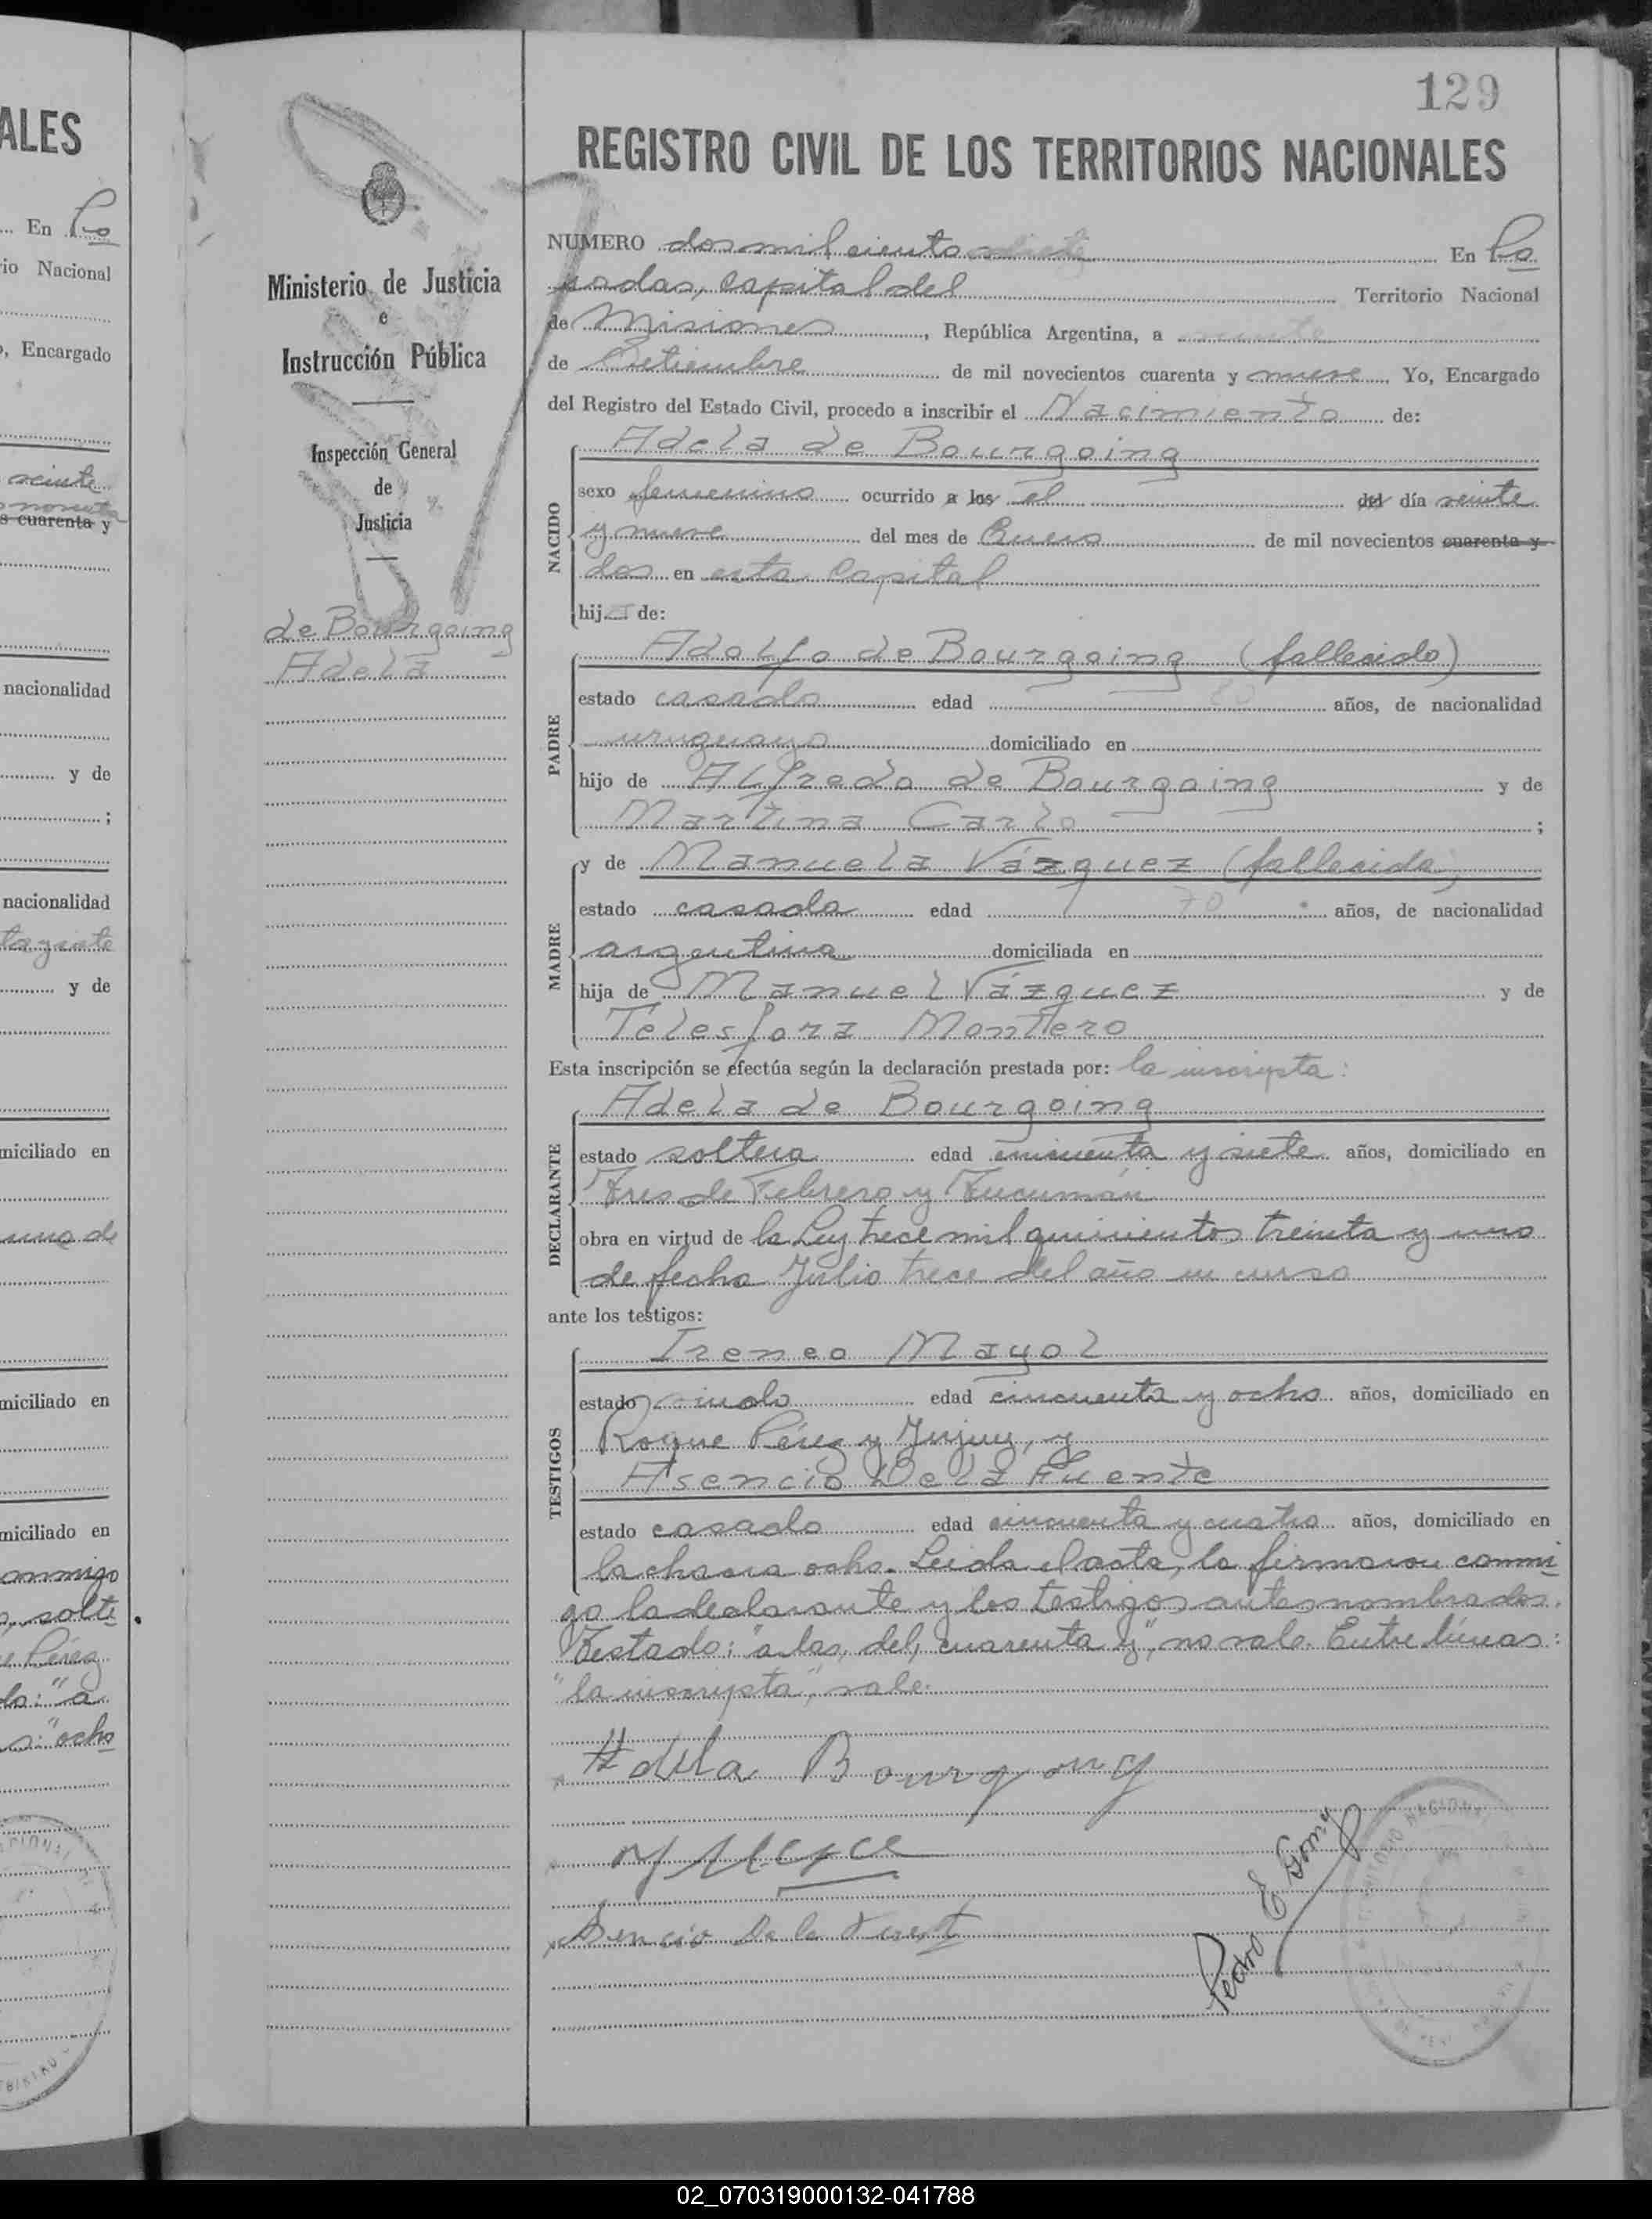 129
REGISTRO CIVIL DE LOS TERRITORIOS NACIONALES
Ministerio de Justicia
e
Instrucción Pública
Inspección General
de
Justicia
de Bourgoing
Adela
NUMERO dos mil ciento siete En Po
sadas, Capital del Territorio Nacional
de Misiones, República Argentina, a
de Setiembre de mil novecientos cuarenta y nueve. Yo, Encargado
del Registro del Estado Civil, procedo a inscribir el Nacimiento de:
NACIDO
Adela de Bourgoing
sexo femenino ocurrido a las el del día veinte
y nueve del mes de Enero de mil novecientos cuarenta y
dos en esta Capital
hija de:
PADRE
Adolfo de Bourgoing (fallecido)
estado casado edad 80 años, de nacionalidad
uruguayo domiciliado en
hijo de Alfredo de Bourgoing y de
Martina Carlo ;
MADRE
y de Manuela Vázquez (fallecida)
estado casada edad 70 años, de nacionalidad
argentina domiciliada en
hija de Manuel Vázquez y de
Telesfora Montero
Esta inscripción se efectúa según la declaración prestada por: la inscripta:
DECLARANTE
Adela de Bourgoing
estado soltera edad cincuenta y siete años, domiciliado en
Tres de Febrero y Tucumán
obra en virtud de la Ley trece mil quinientos treinta y uno
de fecha Julio trece del año en curso
ante los testigos:
TESTIGOS
Ireneo Mayol
estado viudo edad cincuenta y ocho años, domiciliado en
Roque Pérez y Jujuy, y
Asencio De la Fuente
estado casado edad cincuenta y cuatro años, domiciliado en
la chacra ocho. Leida el acta, la firmaron conmi
go la declarante y los testigos antes nombrados.
Testado: "a las, del, cuarenta y", no vale. Entre líneas:
"la inscripta", vale.
Adela Bourgoing
Asencio De la Fuente
Pedro E Gomy
ALES
En Po
io Nacional
, Encargado
veinte
noventa
s cuarenta y
nacionalidad
y de
;
nacionalidad
y de
miciliado en
miciliado en
miciliado en
onmigo
solte
e Pérez
do: "a
s: "ocho
02_070319000132-041788